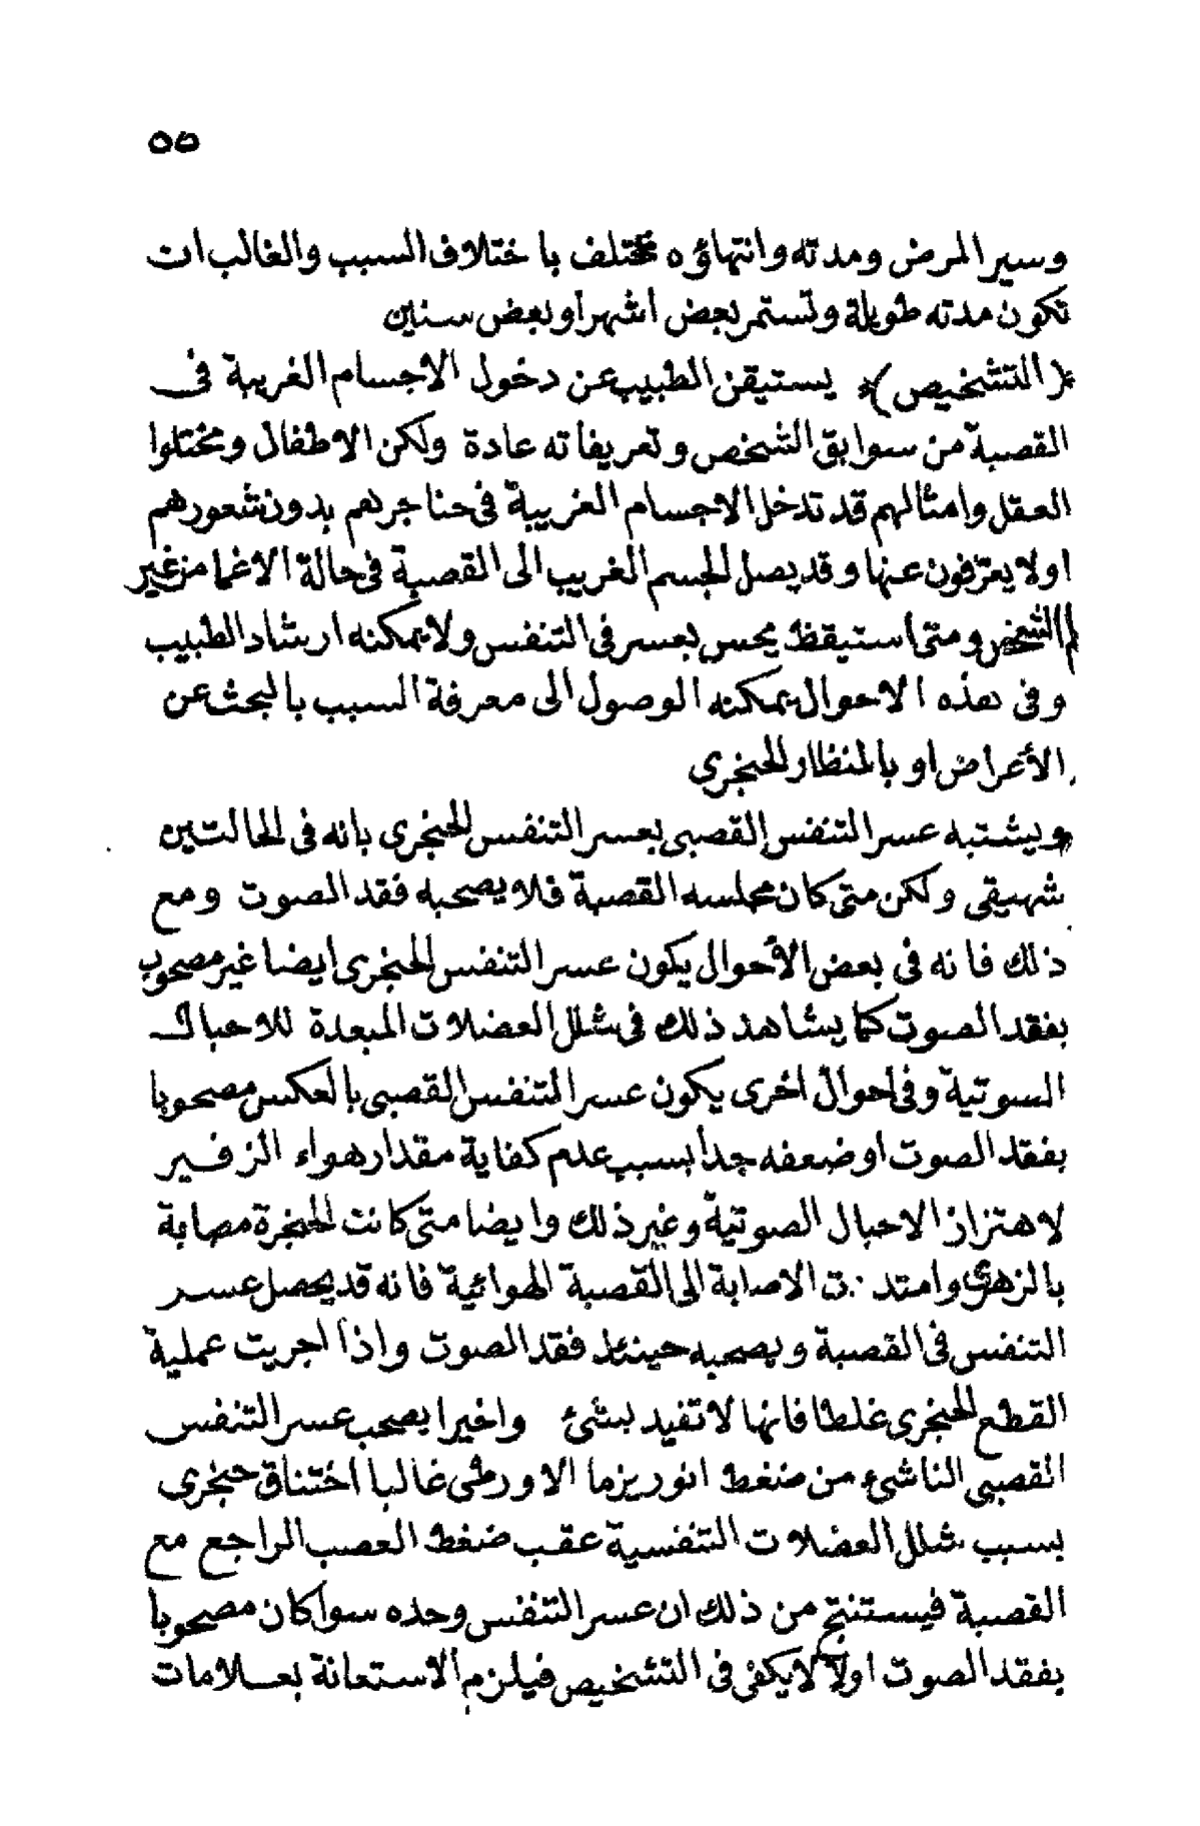 ٥٥
وسير المرض ومدته وانتهاؤه مختلف باختلاف السبب والغالب ان
تكون مدته طويلة وتستمر بعض اشهر أو بعض سنين
﴿التشخيص﴾ يستيقن الطبيب عن دخول الاجسام الغريبة فى
القصبة من سوابق الشخص وتعريفاته عادة ولكن الاطفال ومختلوا
العقل وامثالهم قد تدخل الاجسام الغريبة فى حناجرهم بدون شعورهم
اولا يعرفون عنها وقد يصل الجسم الغريب الى القصبة فى حالة الاغما من غير
الشخص ومتى استيقظ يحس بعسر فى التنفس ولا يمكنه ارشاد الطبيب
وفى هذه الاحوال يمكنه الوصول الى معرفة السبب بالبحث عن
الأعراض او بالمنظار الحنجرى
ويشتبه عسر التنفس القصبى بعسر التنفس الحنجرى بانه فى الحالتين
شهيقى ولكن متى كان مجلسه القصبة فلا يصحبه فقد الصوت ومع
ذلك فانه فى بعض الأحوال يكون عسر التنفس الحنجرى ايضا غير مصحوب
بفقد الصوت كما يشاهد ذلك فى شلل العضلات المبعدة للاحبال
السوتية وفى احوال اخرى يكون عسر التنفس القصبى بالعكس مصحوبا
بفقد الصوت او ضعفه جدا بسبب علم كفاية مقدار هواء الزفير
لاهتزاز الاحبال الصوتية وغير ذلك وايضا متى كانت الحنجرة مصابة
بالزهرى وامتدت الاصابة الى القصبة الهوائية فانه قد يحصل عسر
التنفس فى القصبة ويصحبه حينئذ فقد الصوت واذا اجريت عملية
القطع الحنجرى غلطا فانها لا تفيد بشئ واخيرا يصحب عسر التنفس
القصبى الناشئ من ضغط انوريزما الاورطى غالبا اختناق حنجرى
بسبب شلل العضلات التنفسية عقب ضغط العصب الراجع مع
القصبة فيستنتج من ذلك ان عسر التنفس وحده سوا كان مصحوبا
بفقد الصوت اولا لا يكفى فى التشخيص فيلزم الاستعانة بعلامات